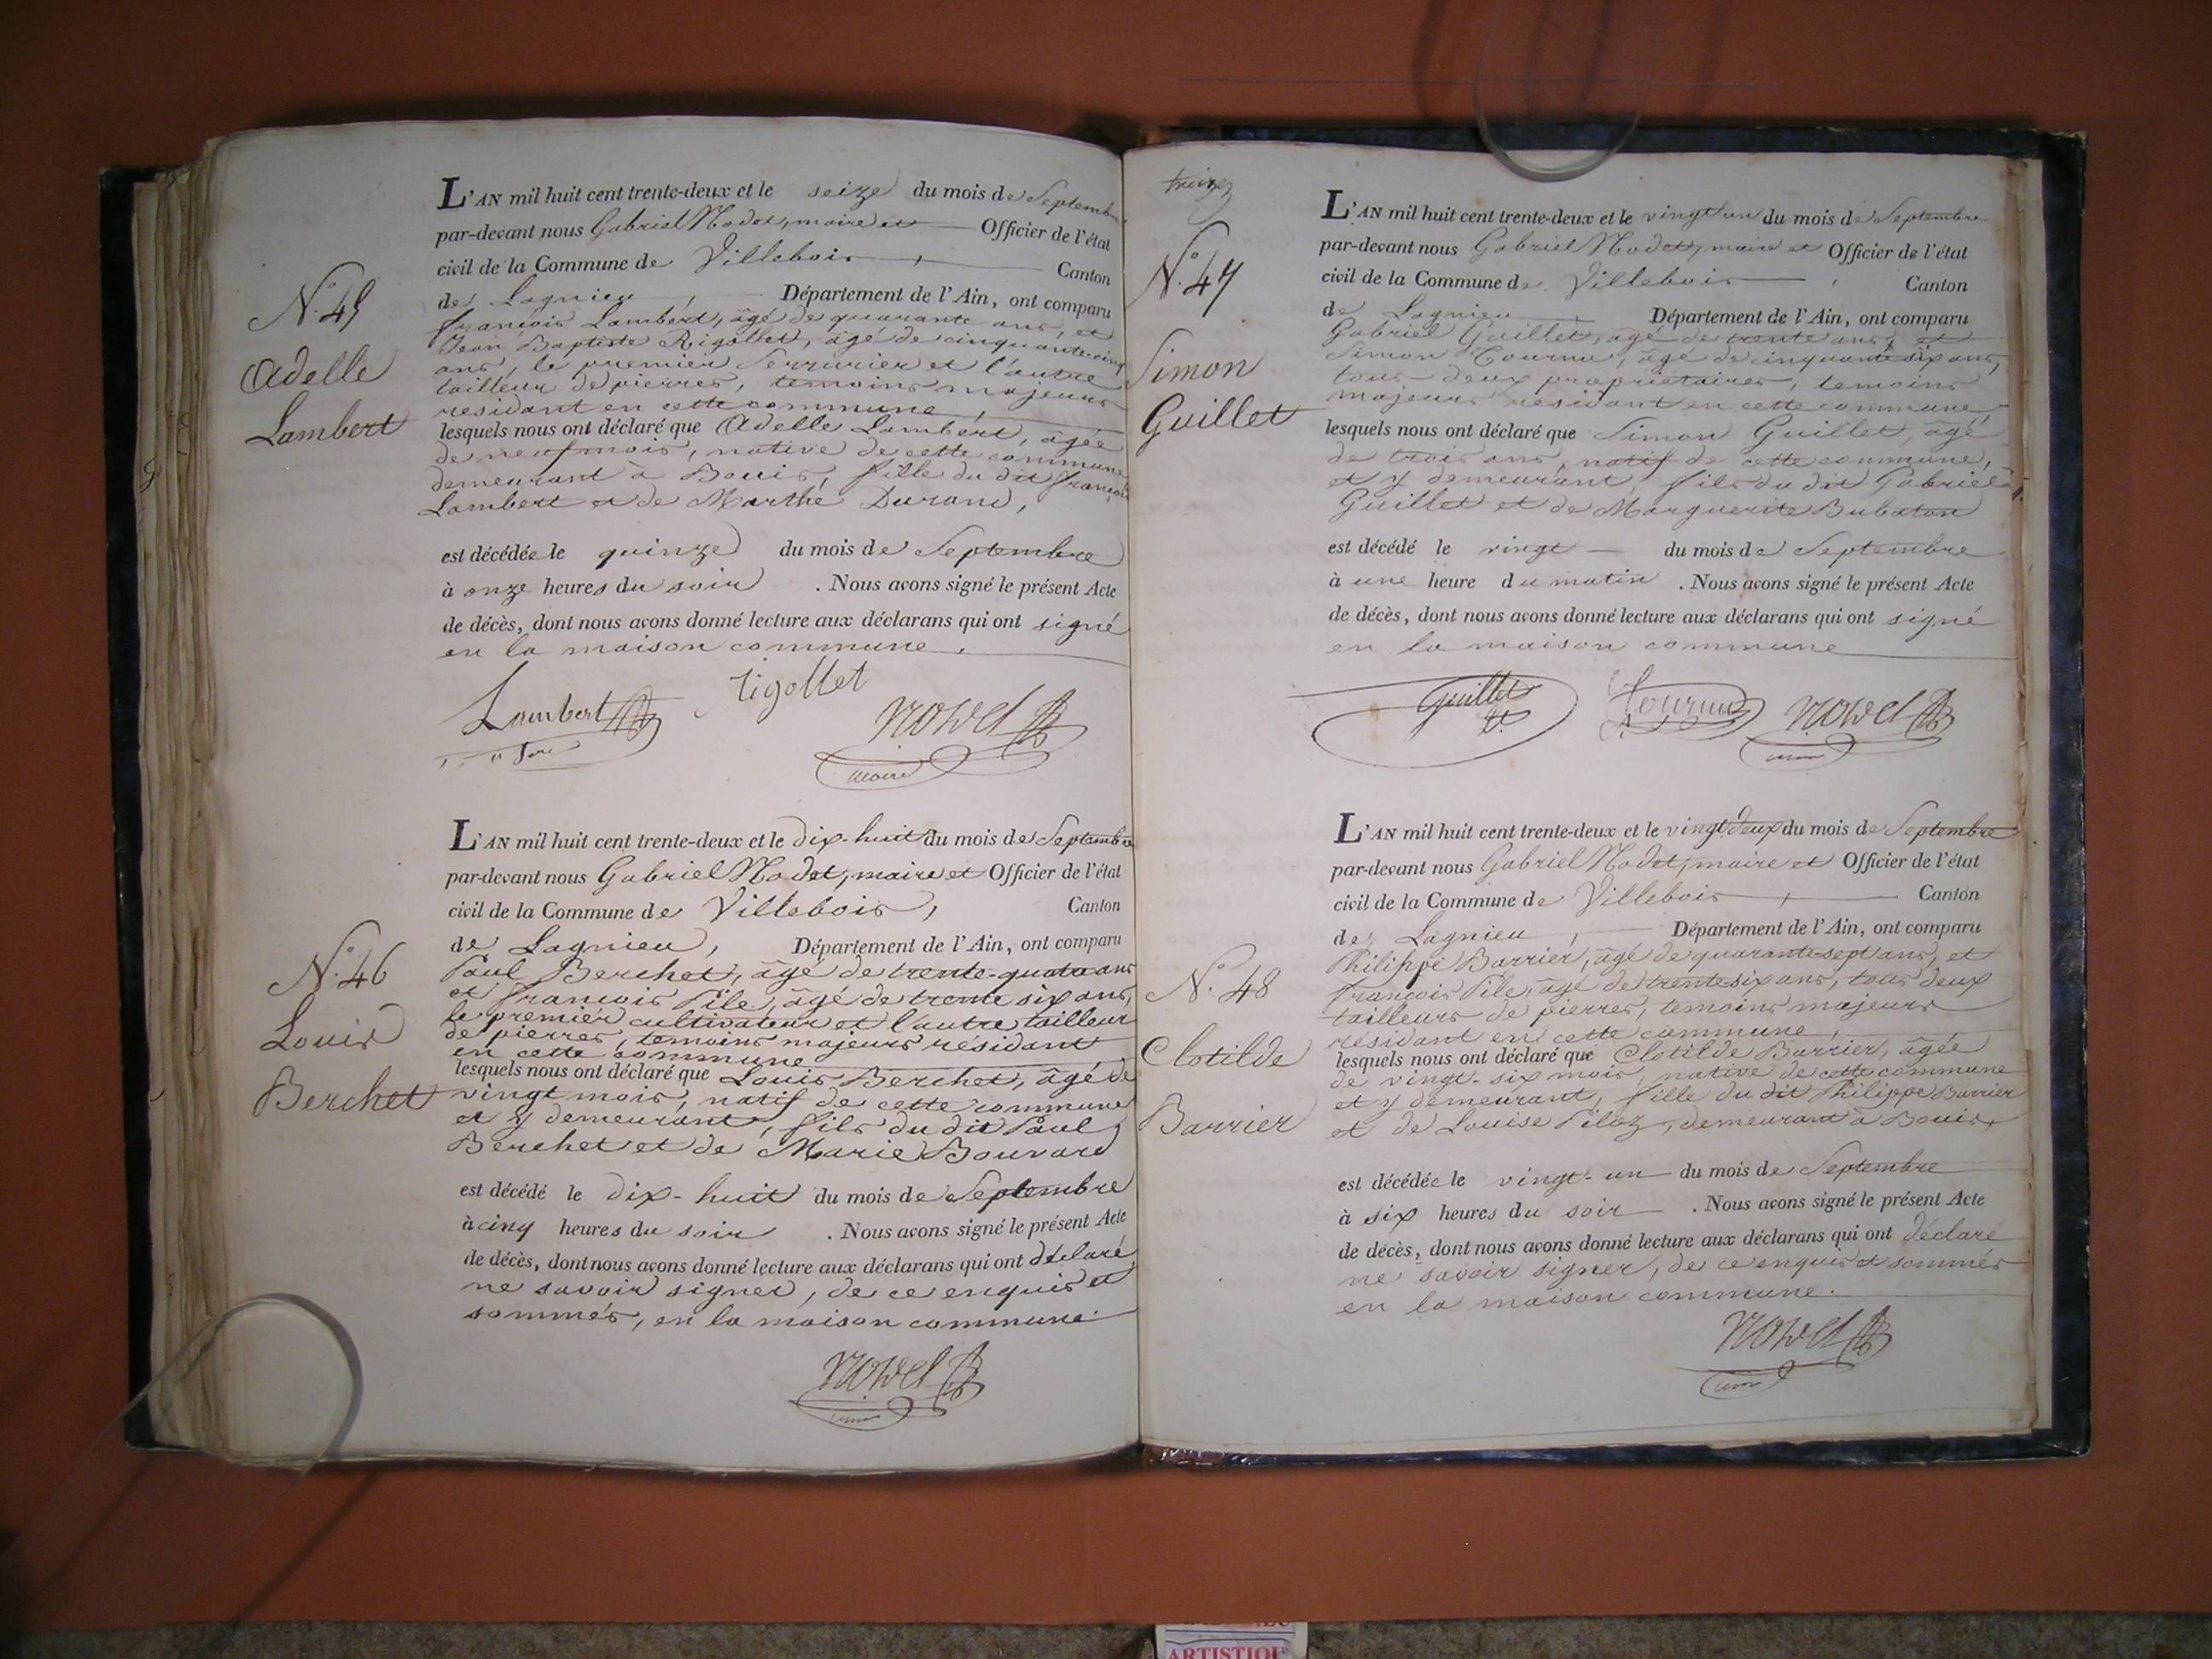 L'AN mil huit cent trente-deux et le seize du mois de Septembre
par-devant nous Gabriel Nodet, maire et Officier de l'état
civil de la Commune de Villebois, Canton
de Lagnieu, Département de l'Ain, ont comparu
françois Lambert, âgé de quarante ans, et
Jean Baptiste Rigollet, âgé de cinquante-cinq
ans, le premier Serrurier et l'autre
tailleur de pierres, temoins majeurs
residant en cette commune,
lesquels nous ont déclaré que Adelle Lambert, âgée
de neuf mois, native de cette commune
demeurant à Bouis, fille du dit françois
Lambert et de Marthe Durand,
est décédée le quinze du mois de Septembre
à onze heures du soir. Nous avons signé le présent Acte
de décès, dont nous avons donné lecture aux déclarans qui ont signé
en la maison commune.
N.º 45
Adelle
Lambert
Lambert Rigollet
maire
L'AN mil huit cent trente-deux et le dix-huit du mois de Septembre
par-devant nous Gabriel Nodet, maire et Officier de l'état
civil de la Commune de Villebois, Canton
de Lagnieu, Département de l'Ain, ont comparu
Paul Berchet, âgé de trente-quatre ans
et françois Pile, âgé de trente six ans,
le premier cultivateur et l'autre tailleur
de pierres, temoins majeurs résidant
en cette commune
lesquels nous ont déclaré que Louis Berchet, âgé de
vingt mois, natif de cette commune
et y demeurant, fils du dit Paul
Berchet et de Marie Bouvard
est décédé le dix-huit du mois de Septembre
à cinq heures du soir. Nous avons signé le présent Acte
de décès, dont nous avons donné lecture aux déclarans qui ont déclaré
ne savoir signer, de ce enquis et
sommés, en la maison commune.
N.º 46
Louis
Berchet
N.º 47
Simon
Guillet
L'AN mil huit cent trente-deux et le vingt un du mois de Septembre
par-devant nous Gabriel Nodet, maire et Officier de l'état
civil de la Commune de Villebois, Canton
de Lagnieu Département de l'Ain, ont comparu
Gabriel Guillet, âgé de trente ans, et
Simon Tournu, âgé de cinquante six ans,
tous deux proprietaires, temoins
majeurs residant en cette commune,
lesquels nous ont déclaré que Simon Guillet, âgé
de trois ans, natif de cette commune,
et y demeurant, fils du dit Gabriel
Guillet et de Marguerite Bubaton
est décédé le vingt du mois de Septembre
à une heure du matin. Nous avons signé le présent Acte
de décès, dont nous avons donné lecture aux déclarans qui ont signé
en la maison commune
Guillet Tournu
N.º 48
Clotilde
Barrier
L'AN mil huit cent trente-deux et le vingt deux du mois de Septembre
par-devant nous Gabriel Nodet, maire et Officier de l'état
civil de la Commune de Villebois, Canton
de Lagnieu, Département de l'Ain, ont comparu
Philippe Barrier, âgé de quarante-sept ans, et
françois Pile, âgé de trente six ans, tous deux
tailleurs de pierres, temoins majeurs
résidant en cette commune,
lesquels nous ont déclaré que Clotilde Barrier, âgée
de vingt-six mois, native de cette commune
et y demeurant, fille du dit Philippe Barrier
et de Louise Piloz, demeurant à Bouis,
est décédée le vingt-un du mois de Septembre
à six heures du soir. Nous avons signé le présent Acte
de décès, dont nous avons donné lecture aux déclarans qui ont déclaré
ne savoir signer, de ce enquis et sommés
en la maison commune.
ARTISTIQU